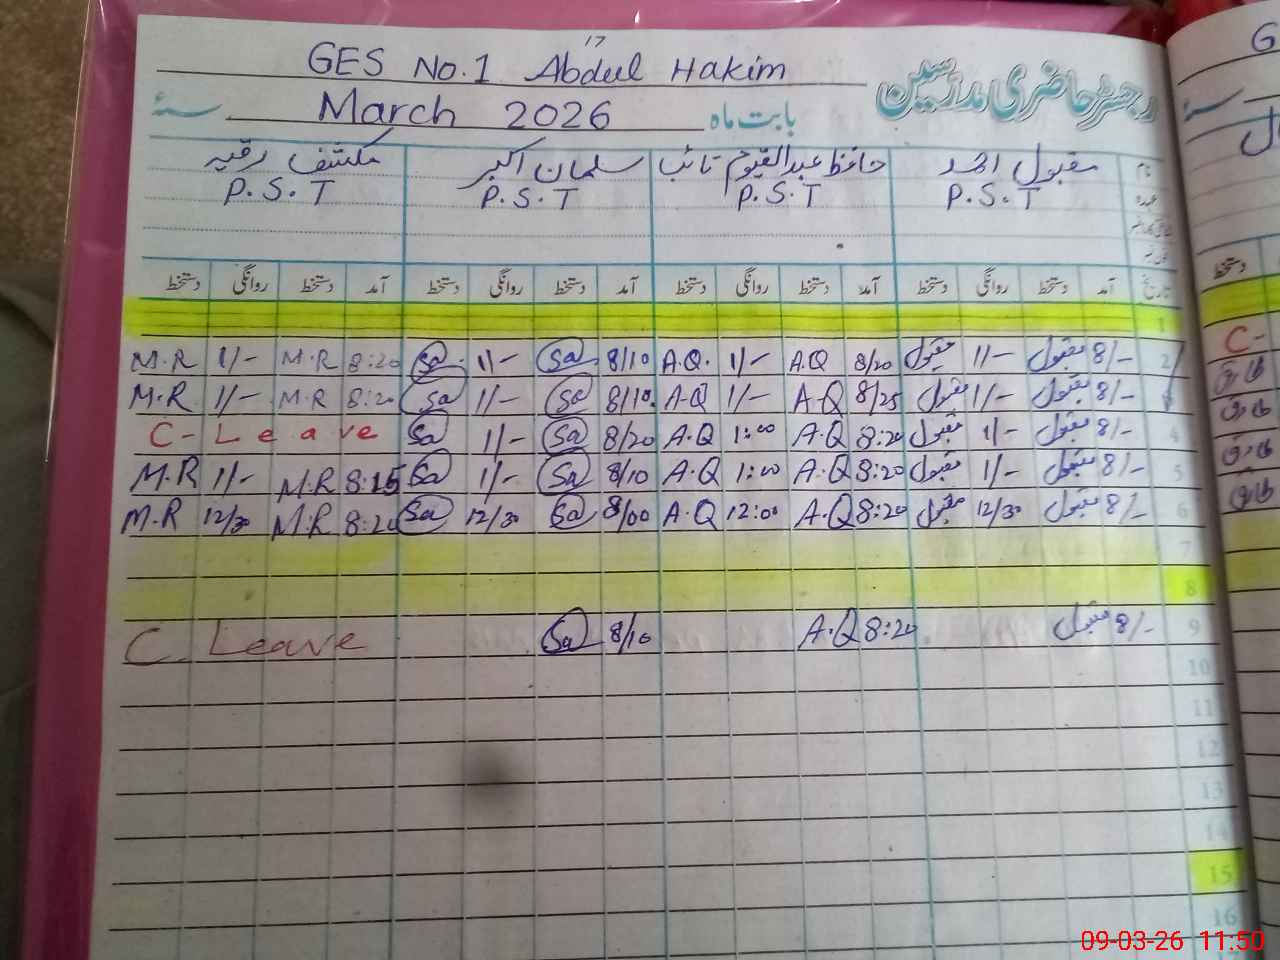 17
GES No.1 Abdul Hakim
رجسٹر حاضری مدرسین
بابت ماہ March 2026 سنہ
نام مقبول احمد حافظ عبدالقیوم تائب سلمان اکبر مکشف رقیہ
عہدہ P.S.T P.S.T P.S.T P.S.T
تاریخ آمد دستخط روانگی دستخط آمد دستخط روانگی دستخط آمد دستخط روانگی دستخط آمد دستخط روانگی دستخط دستخط
1
M.R 1/- M.R 8:20 Sa 1/- Sa 8/10 A.Q. 1/- A.Q 8/20 مقبول 1/- مقبول 8/- 2 C-
M.R 1/- M.R 8:20 Sa 1/- Sa 8/10 A-Q 1/- A-Q 8/25 مقبول 1/- مقبول 8/- طارق
C- Leave Sa 1/- Sa 8/20 A.Q 1:00 A.Q 8:20 مقبول 1/- مقبول 8/- 4 طارق
M.R 1/- M.R 8:15 Sa 1/- Sa 8/10 A.Q 1:00 A.Q 8:20 مقبول 1/- مقبول 8/- 5 طارق
M.R 12/30 M.R 8:20 Sa 12/30 Sa 8/00 A.Q 12:00 A.Q 8:20 مقبول 12/30 مقبول 8/- 6 طارق
7
8
C Leave Sa 8/10 A.Q 8:20 مقبول 8/- 9
10
11
12
13
14
15
16
09-03-26 11:50